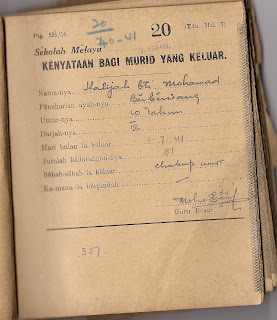 Pag. 526/36.
20
40-41
20
(Edu. Mal. 7)
Sekolah Melayu
KENYATAAN BAGI MURID YANG KELUAR.
Nama-nya Halijah bti. Mohamad
Pencharian ayah-nya Ber bendang
Umur-nya 10 Tahun
Darjah-nya III
Hari bulan ia keluar 7-41
Jumlah kedatangan-nya 81
Sebab-sebab ia keluar chukup umor
Ka-mana ia berpindah
Guru Besar.